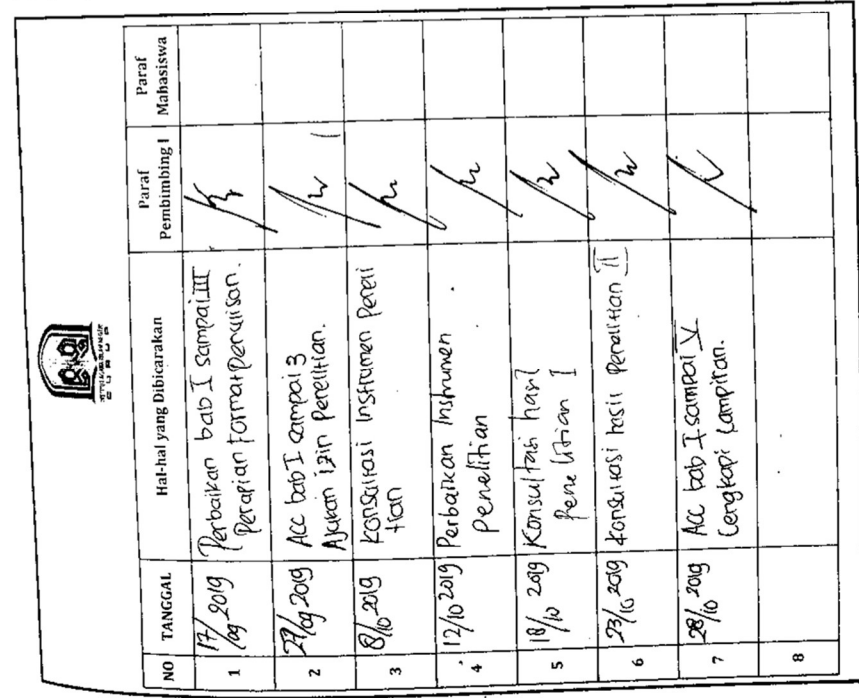 NO TANGGAL Hal-hal yang Dibicarakan Paraf Pembimbing I Paraf Mahasiswa
1 17/09 2019 Perbaikan bab I sampai III
Perapian Format penulisan.
2 27/09 2019 Acc bab I sampai 3
Ajukan izin penelitian.
3 8/10 2019 Konsultasi Instrumen Peneli
tian
4 12/10 2019 Perbaikan Instrumen
penelitian
5 18/10 2019 Konsultasi hasil
Penelitian I
6 23/10 2019 Konsultasi hasil Penelitian II
7 28/10 2019 Acc bab I sampai V
Lengkapi Lampiran.
8